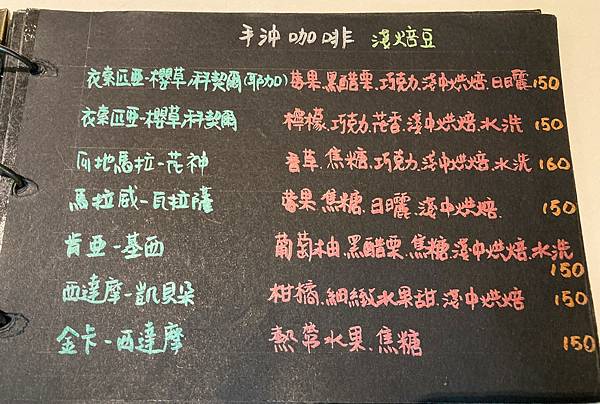 手沖咖啡 淺焙豆
衣索匹亞-櫻草.科契爾(耶加) 莓果.黑醋栗.巧克力.淺中烘焙.日曬 150
衣索匹亞-櫻草.科契爾 檸檬.巧克力.花香.淺中烘焙.水洗 150
瓜地馬拉-花神 香草.焦糖.巧克力.淺中烘焙.水洗 160
馬拉威-瓦拉薩 莓果.焦糖.日曬.淺中烘焙. 150
肯亞-基西 葡萄柚.黑醋栗.焦糖.淺中烘焙.水洗
150
西達摩-凱貝朶 柑橘.細緻水果甜.淺中烘焙 150
金卡-西達摩 熱帶水果.焦糖 150